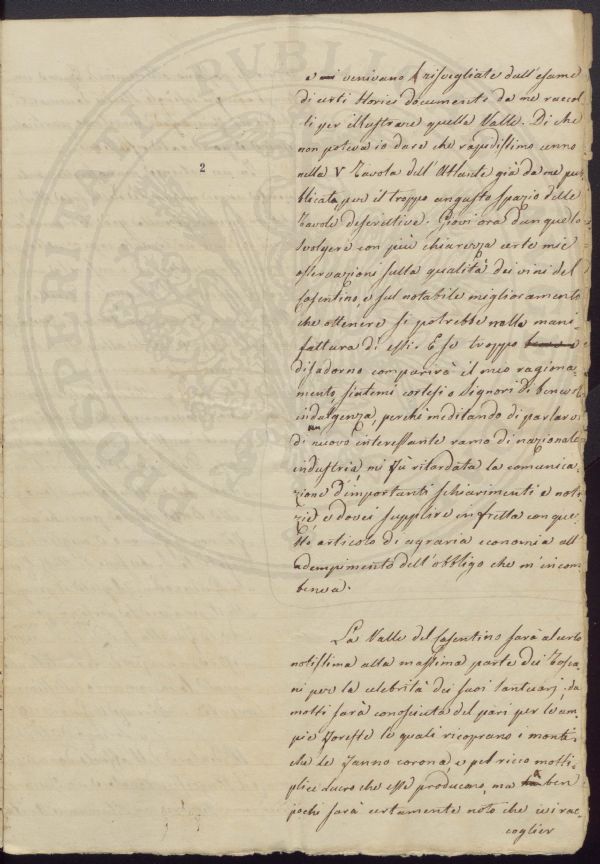 PROSPERITATI PVBLIC
2
e mi venivano risvegliate dall'esame
di certi storici documenti da me raccol
ti per illustrare quella Valle. Di che
non poteva io dare che rapidissimo cenno
nella V Tavola dell'Atlante già da me pu
blicata, per il troppo angusto spazio delle
Tavole descrittive. Giovi ora dunque lo
svolgere con più chiarezza certe mie
osservazioni sulla qualità dei vini del
Casentino, e sul notabile miglioramento
che ottenere si potrebbe nella mani
fattura di essi. E se troppo
disadorno comparirà il mio ragiona
mento, siatemi cortesi o Signori di benevol
indulgenza, perchè meditando di parlarvi
di un nuovo interessante ramo di nazionale
industria, mi fù ritardata la comunica
zione d'importanti schiarimenti e noti
zie e dovei supplire in fretta con que
sto articolo di agraria economia all'
adempimento dell'obbligo che m'incom
beva.
La Valle del Casentino sarà al certo
notissima alla massima parte dei Tosca
ni per la celebrità dei suoi santuarj, da
molti sarà conosciuta del pari per le am
pie foreste le quali ricoprano i monti
che le fanno corona, e pel ricco molti
plice lucro che esse producono, ma a ben
pochi sarà certamente noto che ivi rac
coglier